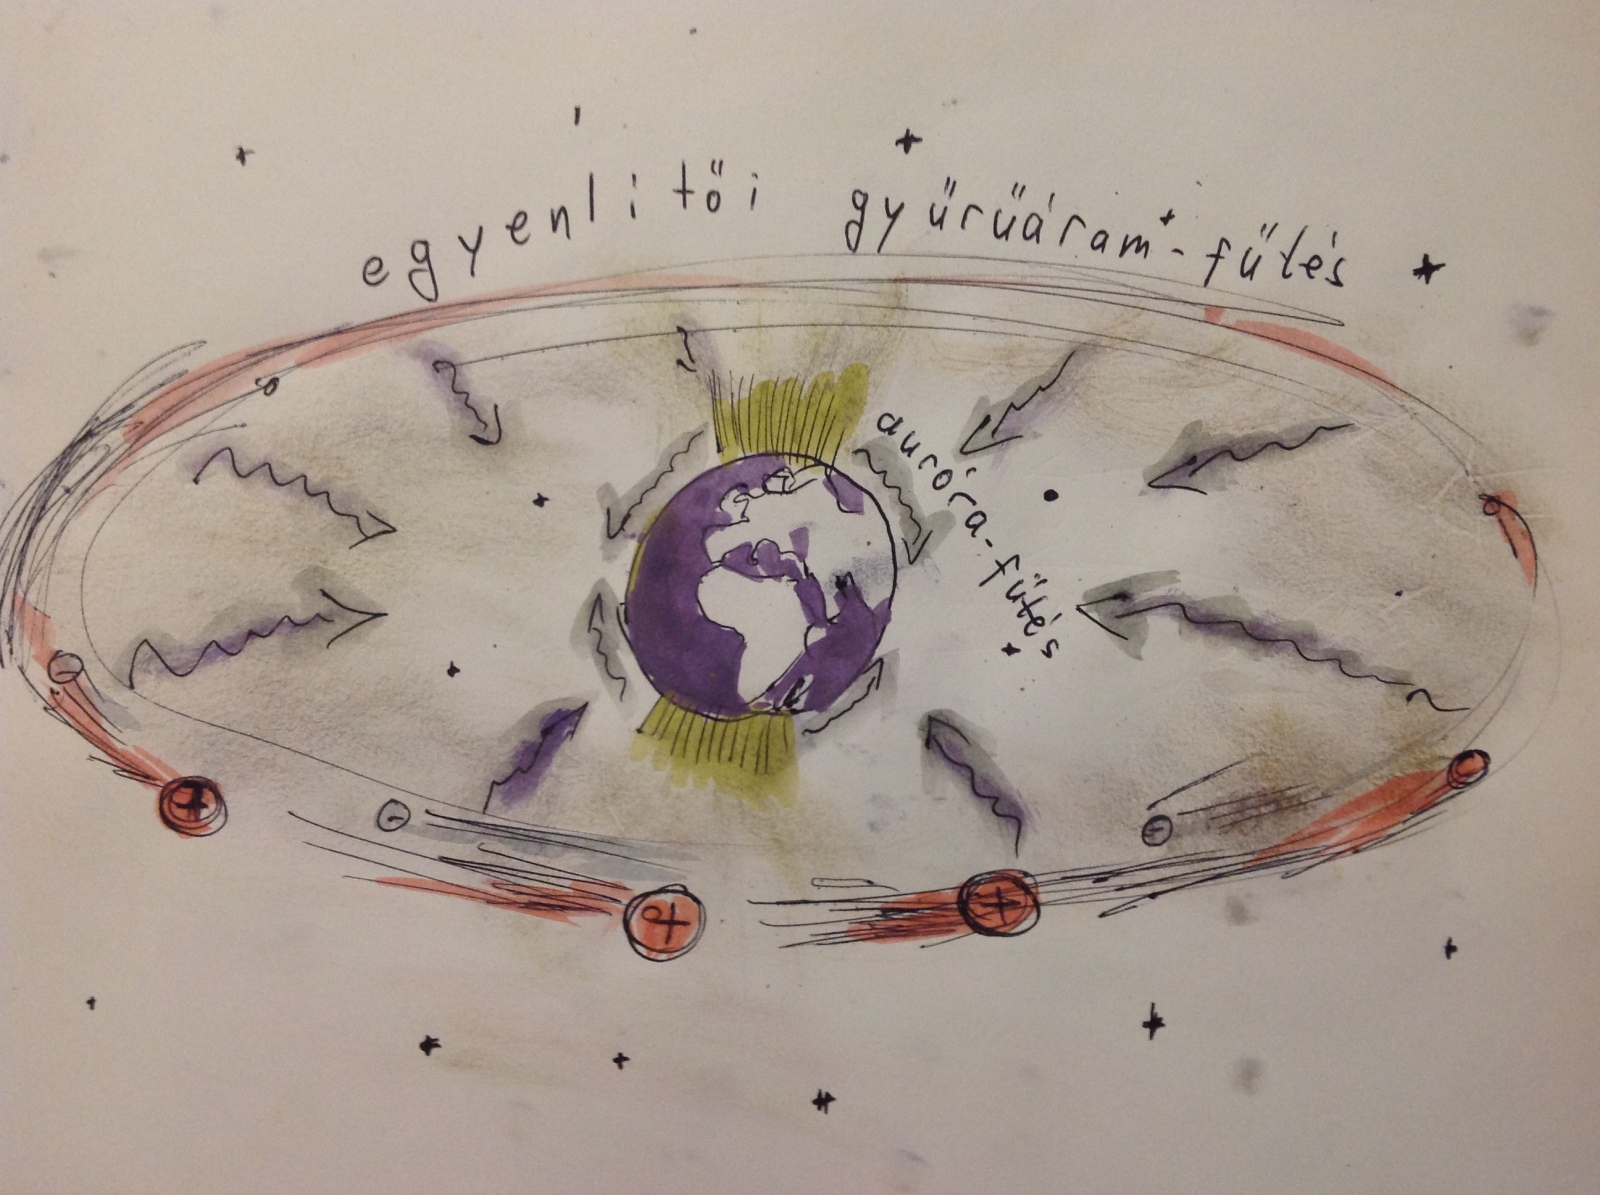 egyenlítői gyűrűáram-fűtés
auróra-fűtés
+
-
-
-
+
+